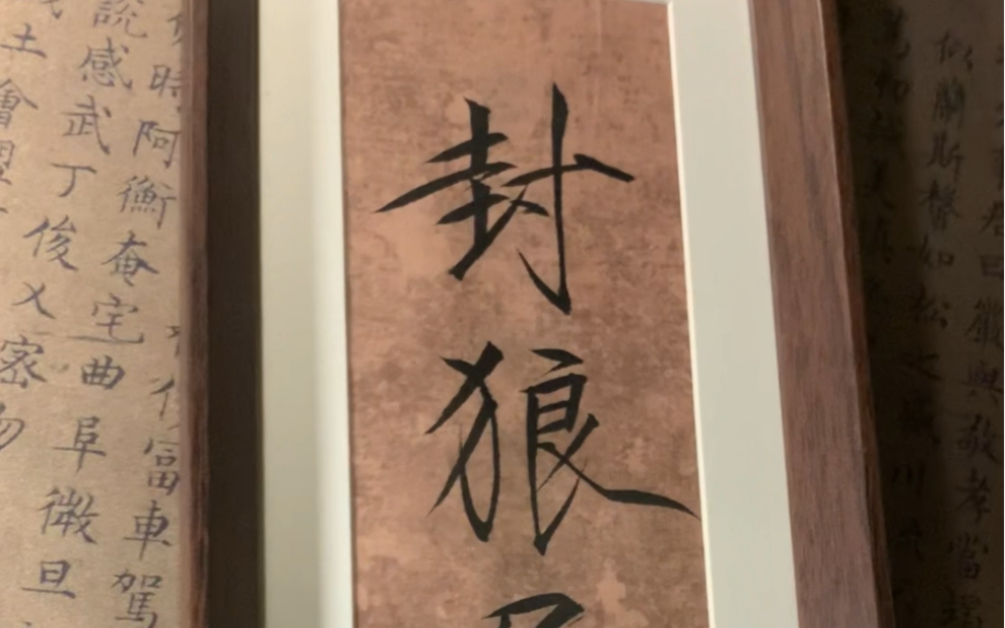 曰嚴與敬孝當竭
似蘭斯馨如松之盛川
封狼
富車駕
時阿衡奄宅曲阜微旦
說感武丁俊乂密勿
土會盟